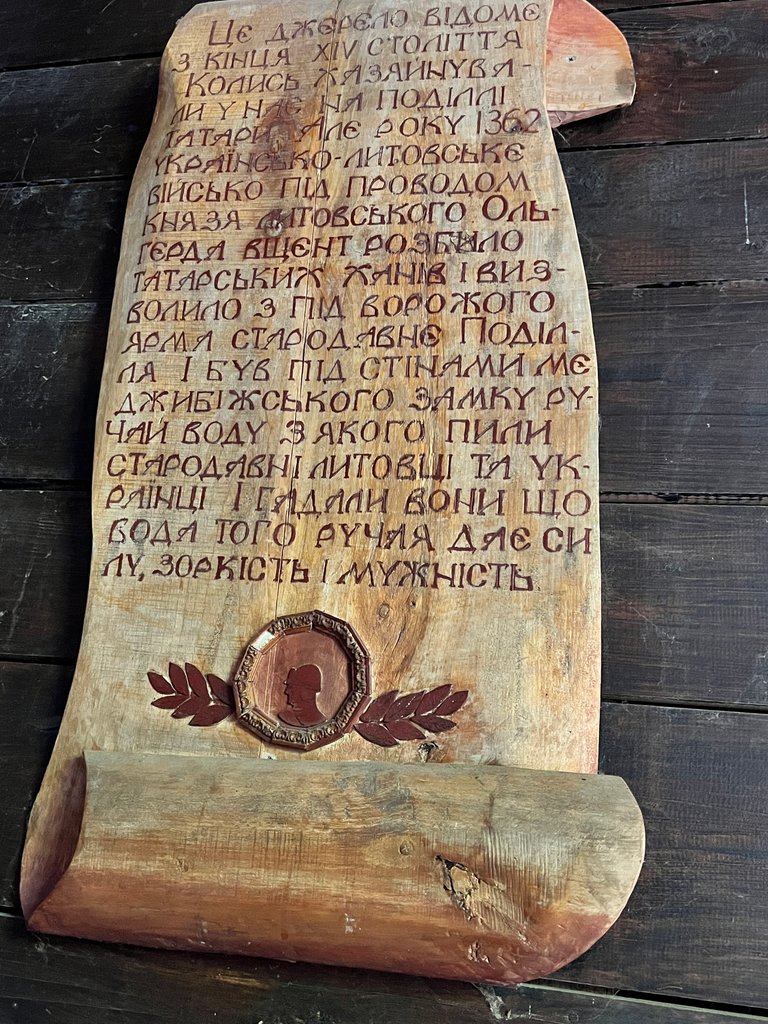 Це джерело відоме
з кінця XIV століття
Колись хазяйнува-
ли у нас на Поділлі
татари. Але року 1362
українсько-литовське
військо під проводом
князя литовського Оль-
герда вщент розбило
татарських ханів і виз-
волило з під ворожого
ярма стародавнє Поділ-
ля І був під стінами ме
джибіжського замку ру-
чай воду з якого пили
стародавні литовці та ук-
раїнці І гадали вони що
вода того ручая дає си
лу, зоркість і мужність